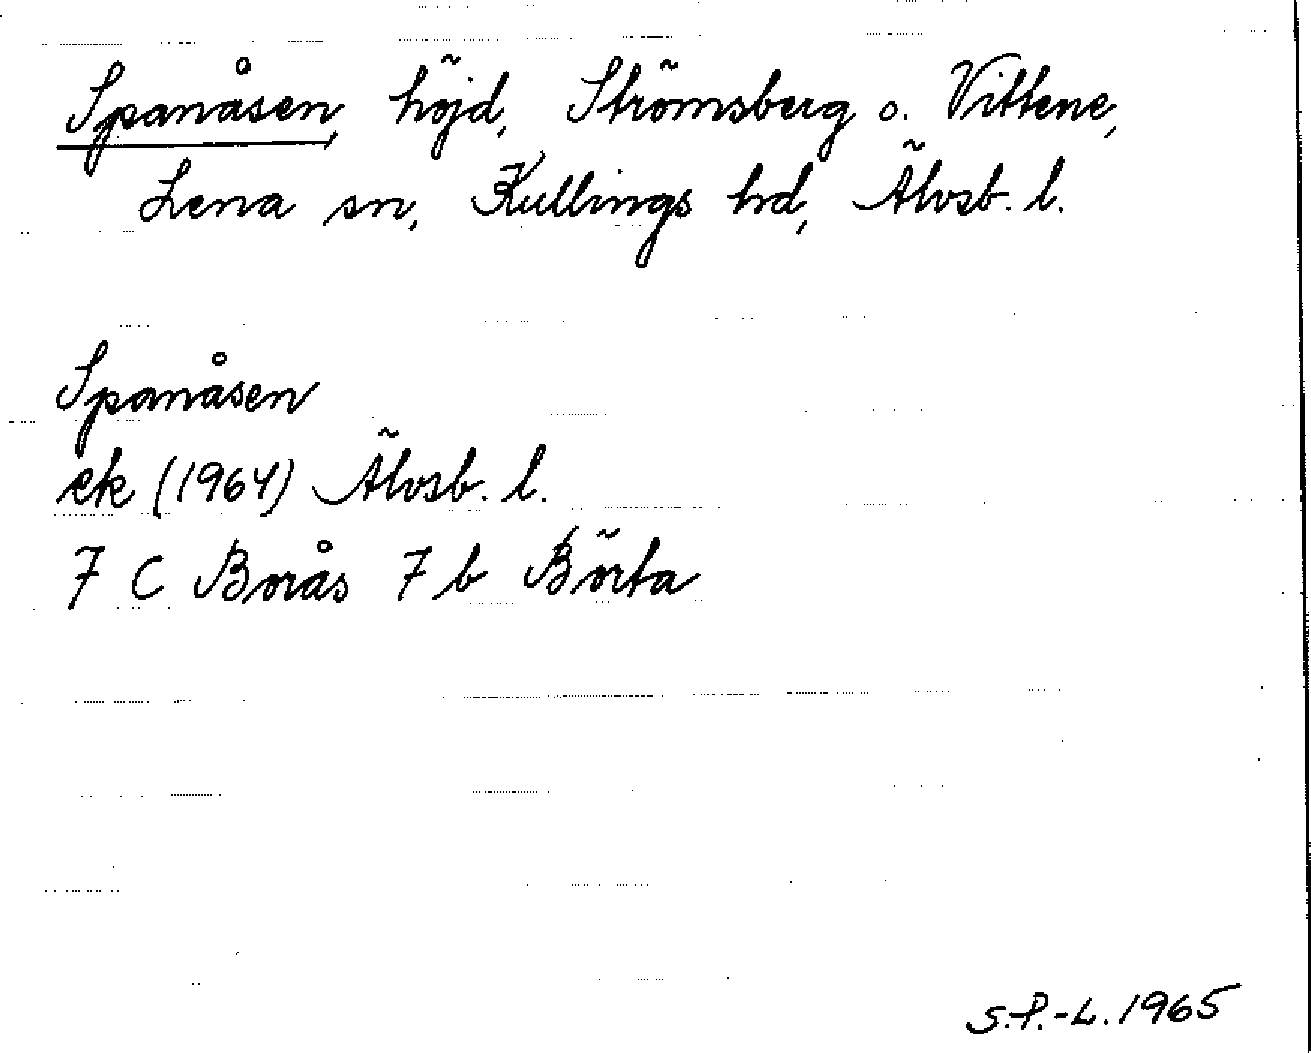 Spanåsen, höjd, Strömsberg o. Vittene,
Lena sn, Kullings hd, Älvsb. l.
Spanåsen
ek (1964) Älvsb. l.
7 C Borås 7 b Börta
S.P.-L. 1965